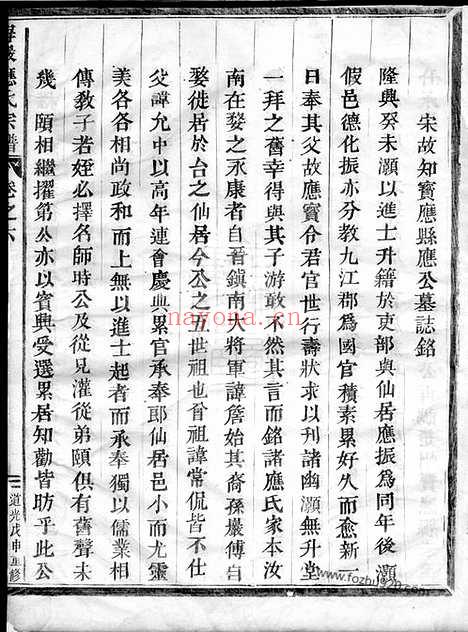 宋故知寶應縣應公墓誌銘
隆興癸未灝以進士升籍於吏部與仙居應振爲同年後灝
假邑德化振亦分教九江郡爲國官積素累好久而愈新一
日奉其父故應寶令君官世行壽狀求以刊諸幽灝無升堂
一拜之舊幸得與其子游敢不然其言而銘諸應氏家本汝
南在婺之永康者自晉鎮南大將軍諱詹始其裔孫巖傅自
婺徙居於台之仙居今公之五世祖也曾祖諱常侃皆不仕
父諱允中以高年連會慶典累官承奉郎仙居邑小而尤靈
美各各相尚政和而上無以進士起者而承奉獨以儒業相
傳教子若姪必擇名師時公及從兄灌從弟頤俱有舊聲未
幾 頤相繼擢第公亦以賓興受選累居知勸皆昉乎此公
應氏宗譜
卷之六
道光戊申重修
nayona.cn
www.fozhu920.com